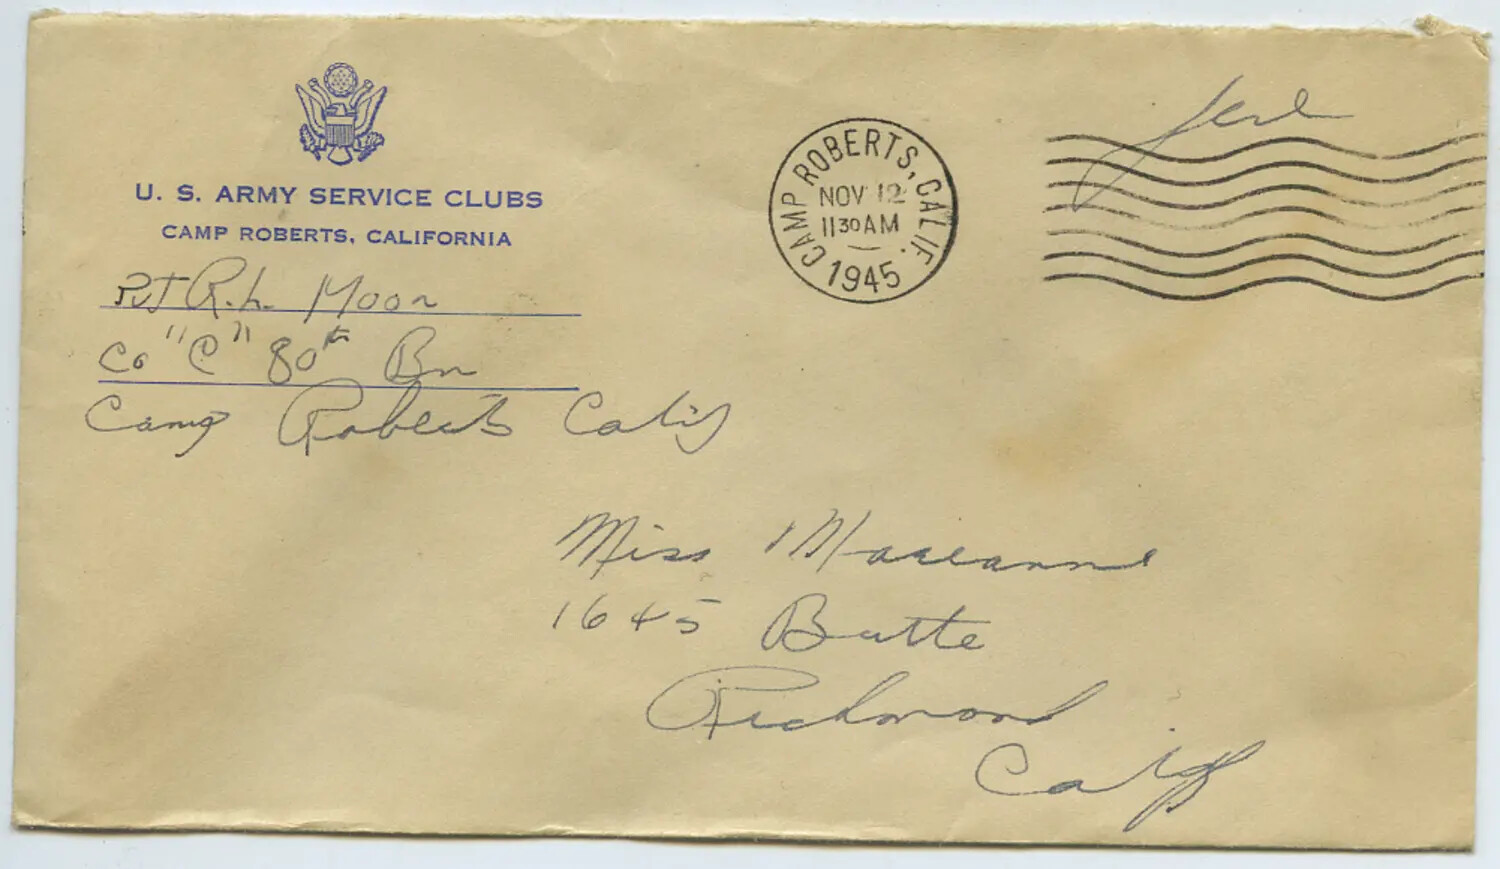 U. S. ARMY SERVICE CLUBS
CAMP ROBERTS, CALIFORNIA
Pvt R.L. Moon
Co "C" 80th Bn
Camp Roberts Calif
CAMP ROBERTS, CALIF.
NOV 12
11 30 AM
1945
Free
Miss Mareanne
1645 Butte
Richmond
Calif